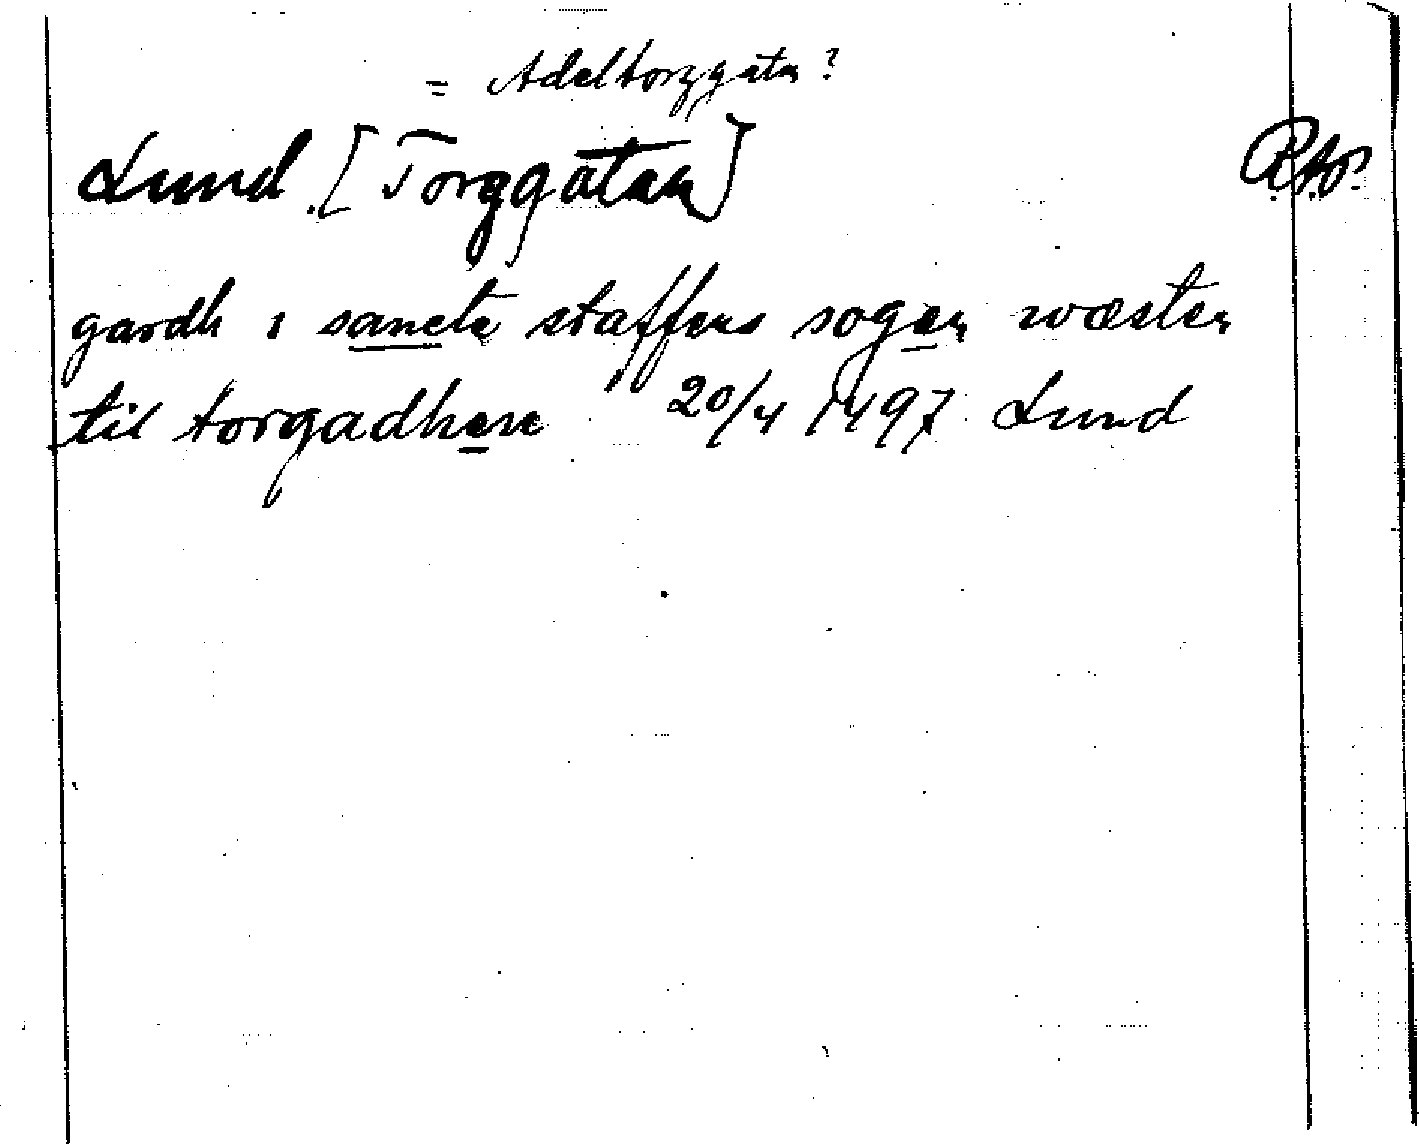 = Adeltorzgata ?
Lund. [Torggatan]
gardh i sancte staffens sogen wæsten
til torgadhene 20/4 1497 Lund